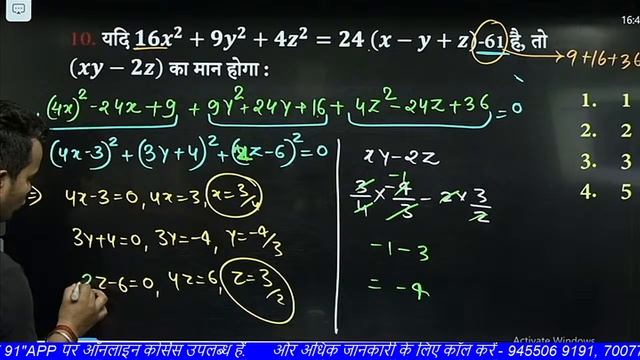 16:4
10. यदि 16x² + 9y² + 4z² = 24 (x − y + z) -61 है, तो
→ 9+16+36
(xy − 2z) का मान होगा :
(4x)² - 24x + 9 + 9y² + 24y + 16 + 4z² - 24z + 36 = 0
1. 1
2. 2
3. 3
4. 5
(4x-3)² + (3y+4)² + (2z-6)² = 0
⇒) 4x-3=0, 4x=3, x=3/4
3y+4=0, 3y=-4, y=-4/3
2z-6=0, 4z=6, z=3/2
xy-2z
3/4 × -4/3 - 2 × 3/2
-1
-1-3
= -4
Activate Windows
91"APP पर ऑनलाइन कोर्सेस उपलब्ध हैं. और अधिक जानकारी के लिए कॉल करें - 945506 9191, 70077